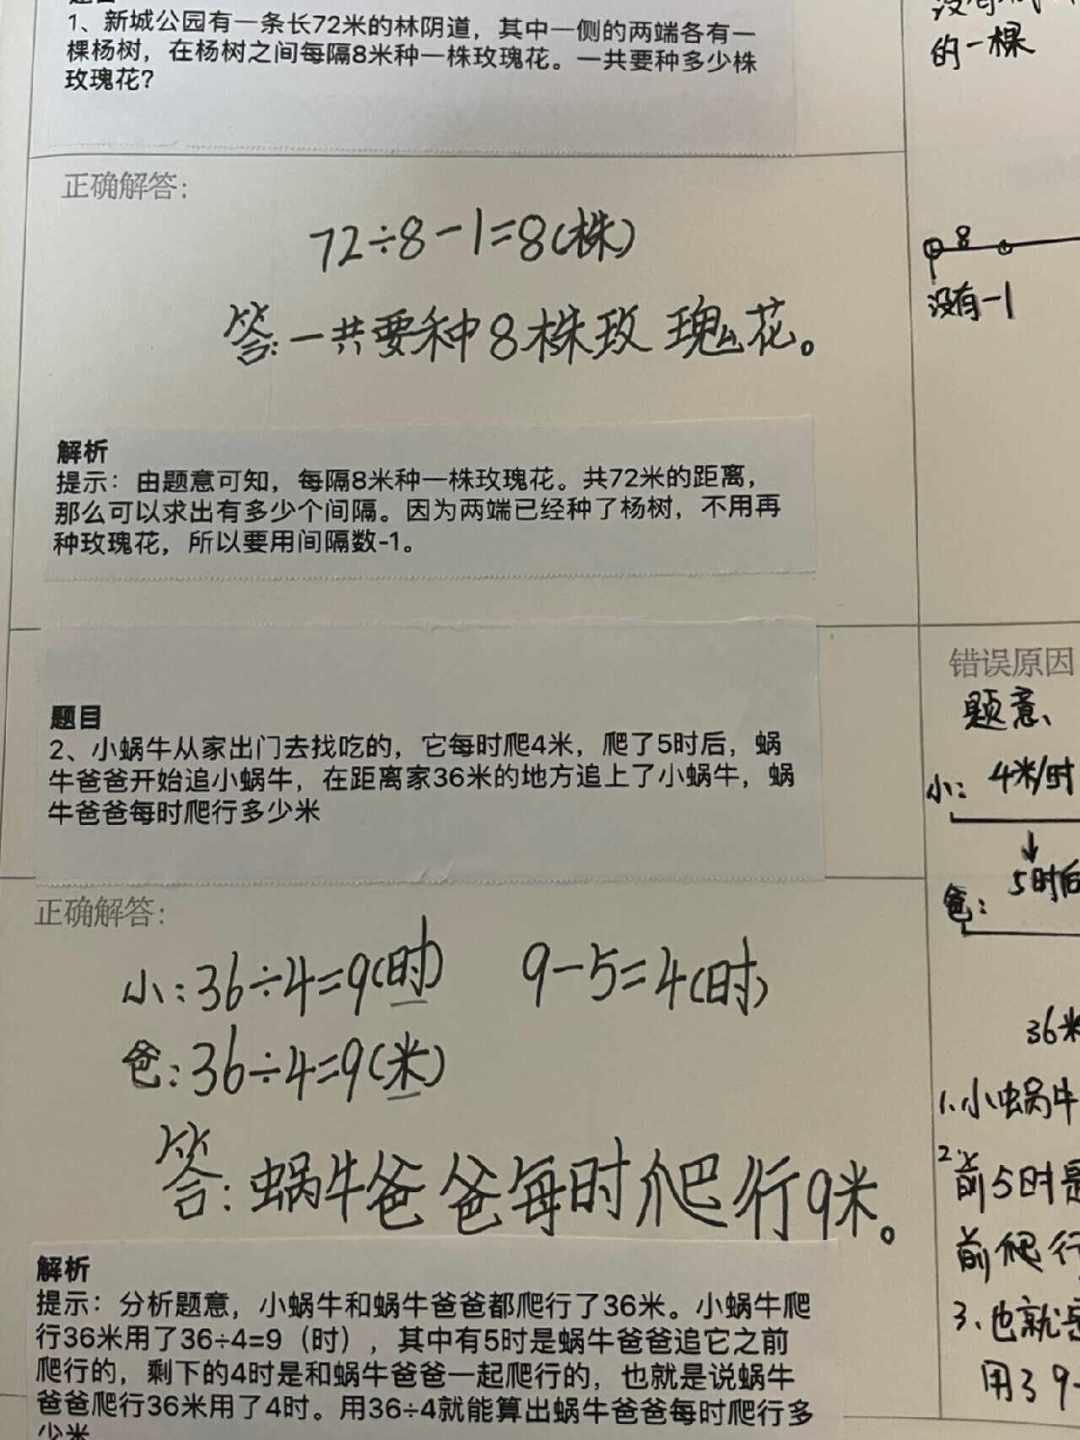 1、新城公园有一条长72米的林阴道，其中一侧的两端各有一
棵杨树，在杨树之间每隔8米种一株玫瑰花。一共要种多少株
玫瑰花?
的一棵
正确解答：
72÷8-1=8(株)
答:一共要种8株玫瑰花。
8
没有-1
解析
提示：由题意可知，每隔8米种一株玫瑰花。共72米的距离，
那么可以求出有多少个间隔。因为两端已经种了杨树，不用再
种玫瑰花，所以要用间隔数-1。
题目
2、小蜗牛从家出门去找吃的，它每时爬4米，爬了5时后，蜗
牛爸爸开始追小蜗牛，在距离家36米的地方追上了小蜗牛，蜗
牛爸爸每时爬行多少米
正确解答：
小:36÷4=9(时) 9-5=4(时)
爸:36÷4=9(米)
答:蜗牛爸爸每时爬行9米。
解析
提示：分析题意，小蜗牛和蜗牛爸爸都爬行了36米。小蜗牛爬
行36米用了36÷4=9（时），其中有5时是蜗牛爸爸追它之前
爬行的，剩下的4时是和蜗牛爸爸一起爬行的，也就是说蜗牛
爸爸爬行36米用了4时。用36÷4就能算出蜗牛爸爸每时爬行多
少米
错误原因
题意、
小: 4米/时
5时后
爸:
36米
1.小蜗牛
2.前5时是
前爬行
3.也就是
用了9-